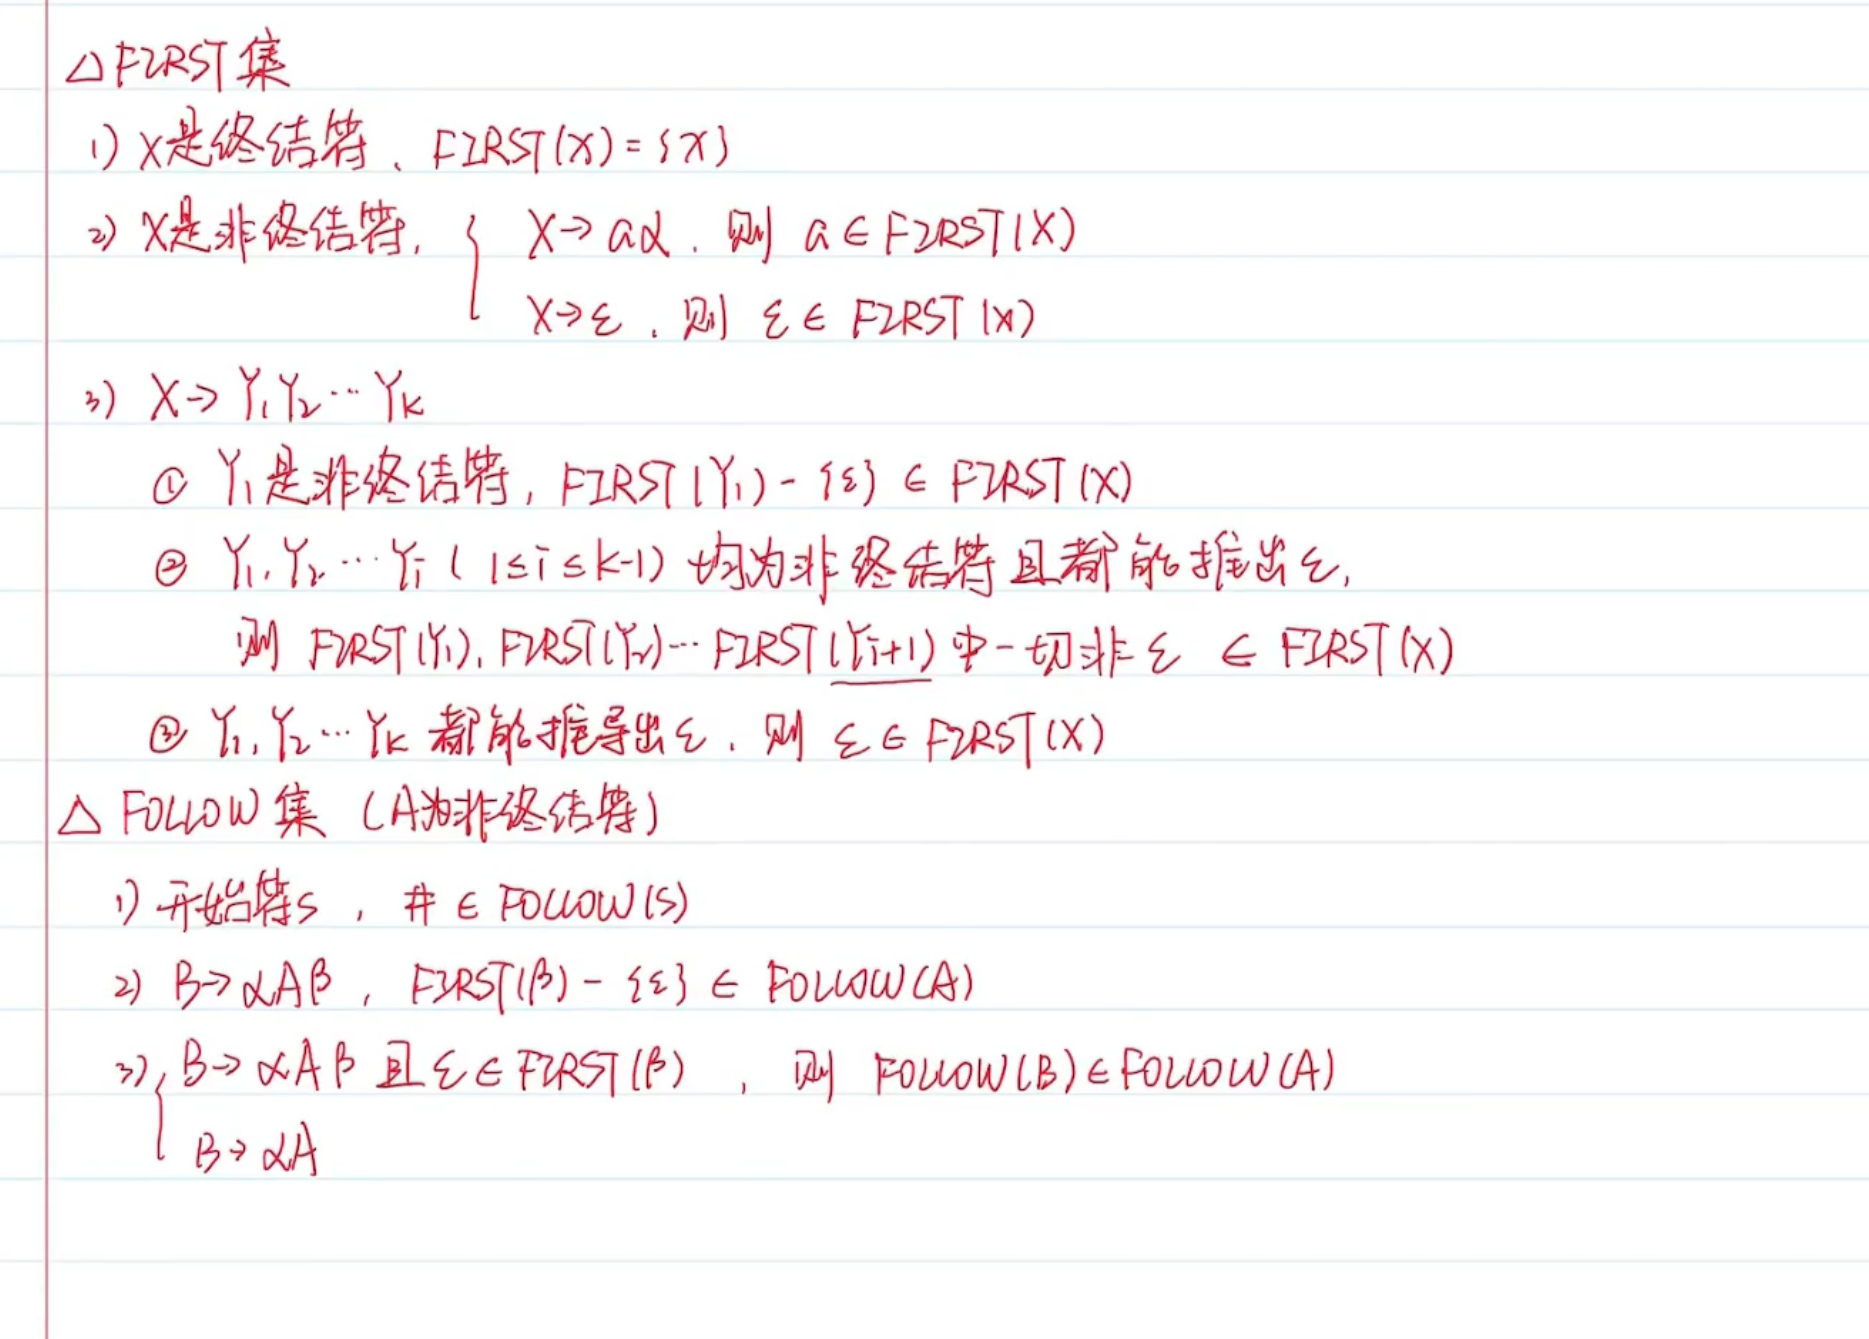 △FIRST集
1) X是终结符、FIRST(X)={X}
2) X是非终结符, { X→aα、则 a∈FIRST(X)
X→ε、则 ε∈FIRST(X)
3) X→Y₁Y₂…Yₖ
① Y₁是非终结符, FIRST(Y₁)-{ε}∈FIRST(X)
② Y₁,Y₂…Yᵢ(1≤i≤k-1)均为非终结符且都能推出ε,
则 FIRST(Y₁), FIRST(Y₂)…FIRST(Yi+1)中一切非ε ∈ FIRST(X)
③ Y₁,Y₂…Yₖ都能推导出ε、则 ε∈FIRST(X)
△ FOLLOW集 (A为非终结符)
1) 开始符S, #∈FOLLOW(S)
2) B→αAβ, FIRST(β)-{ε}∈FOLLOW(A)
3) { B→αAβ 且ε∈FIRST(β), 则 FOLLOW(B)∈FOLLOW(A)
B→αA